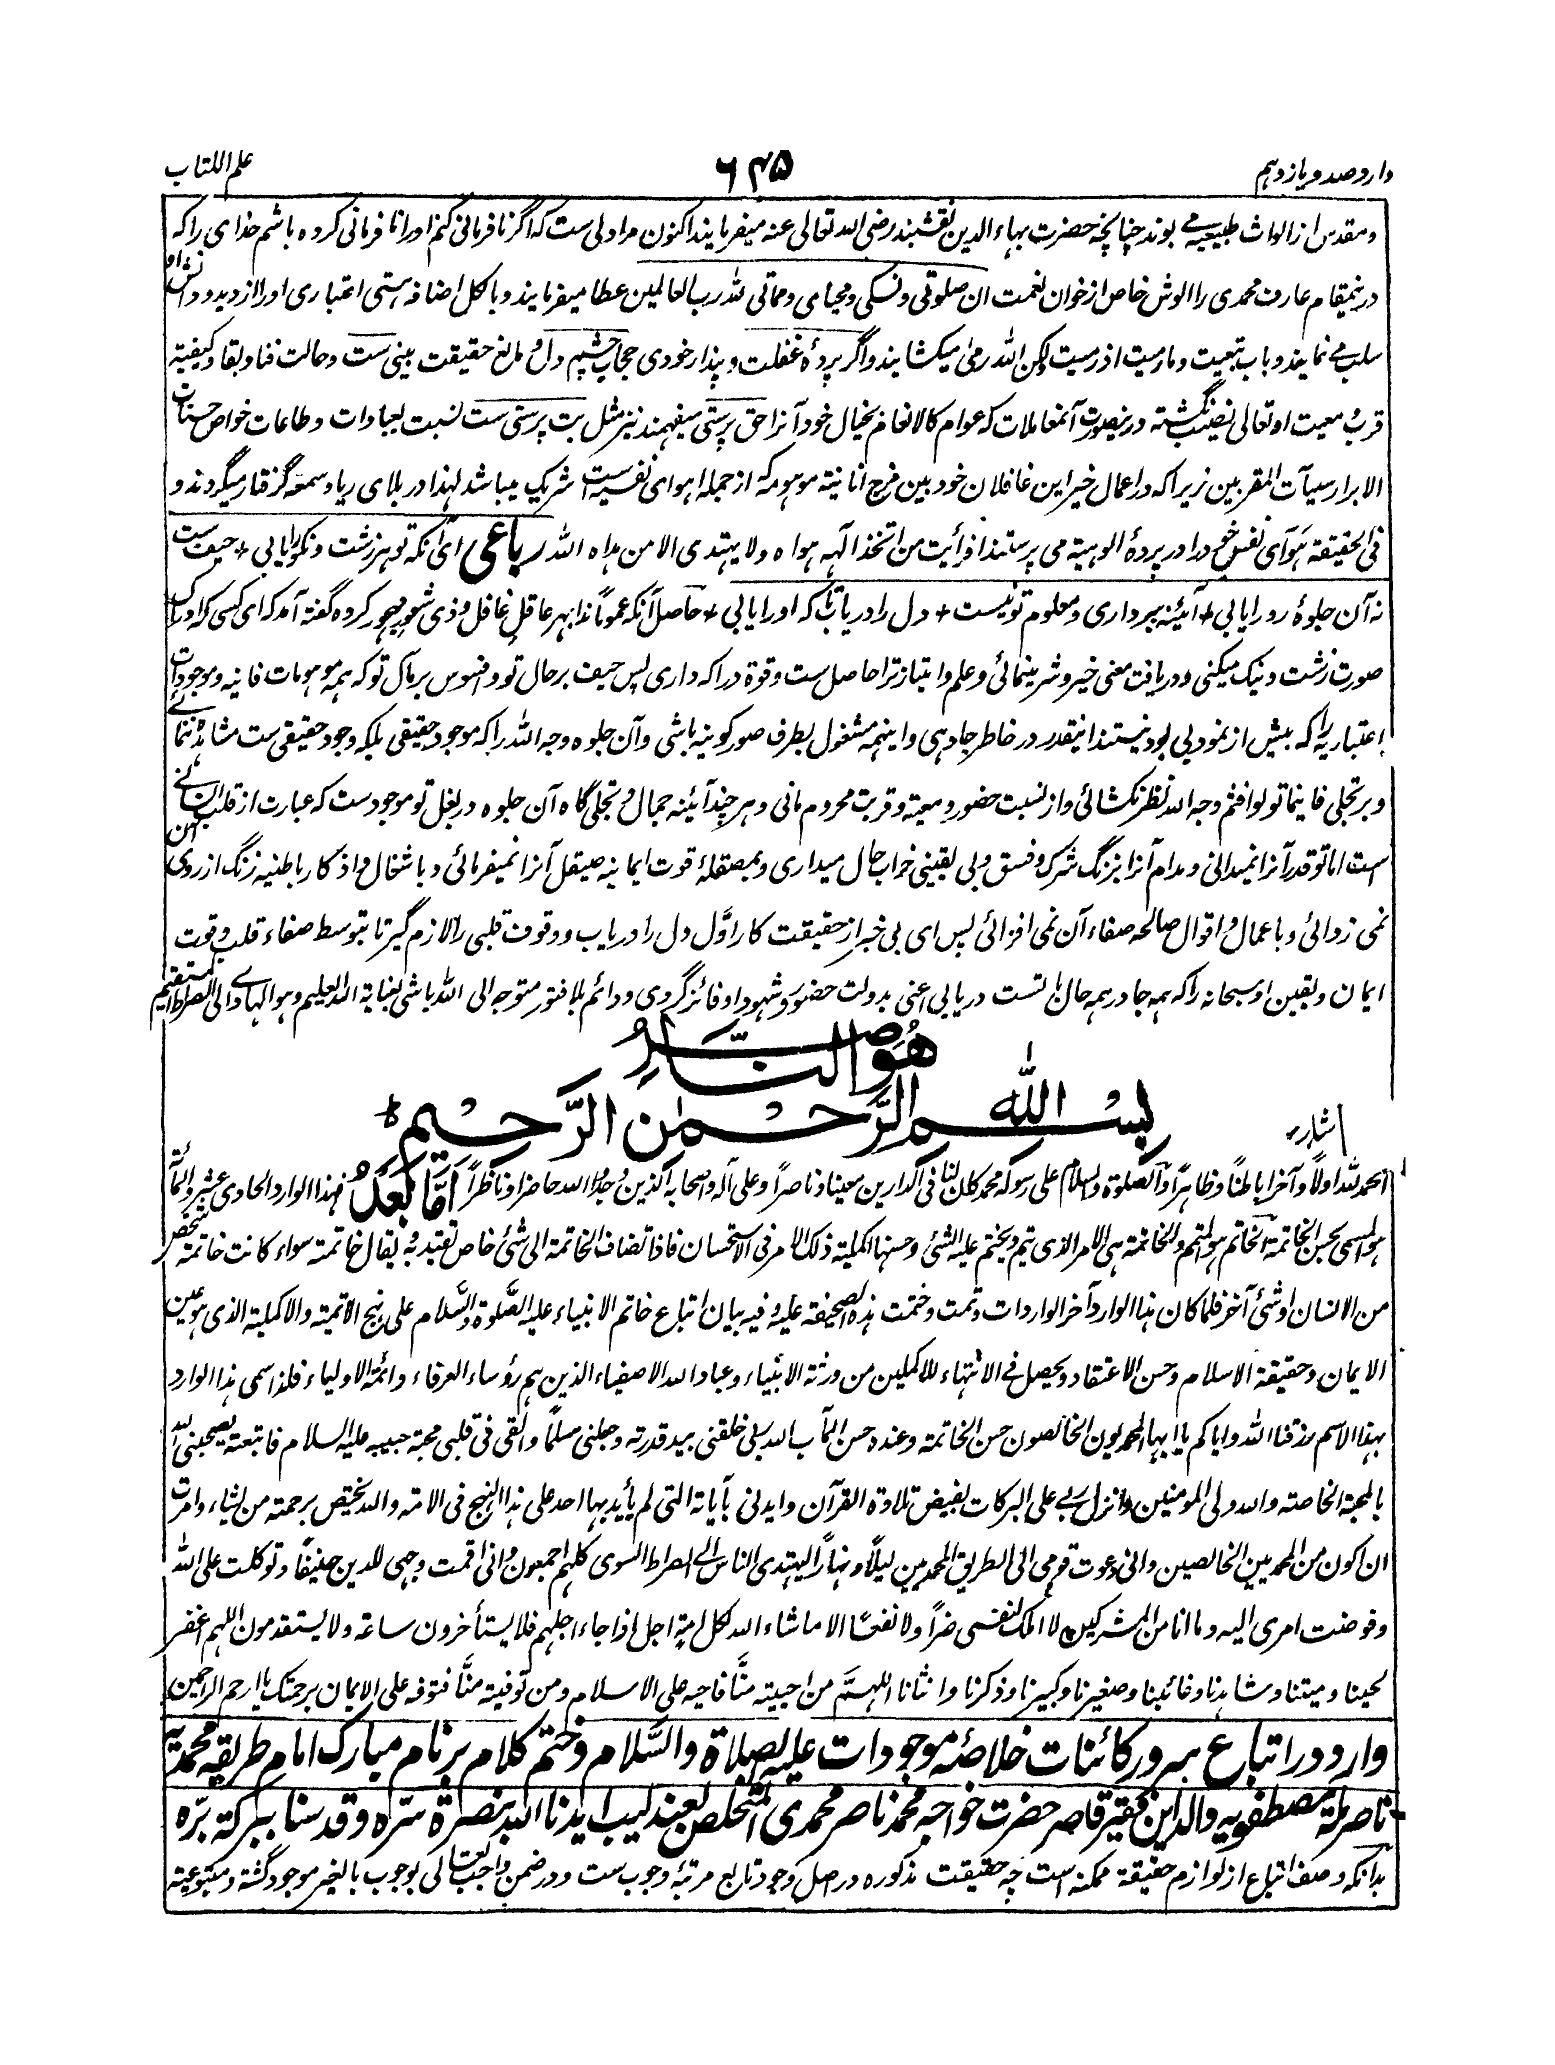 وارد صد و یازدهم
۶۴۵
علم الکتاب
و مقدس از الواث طبیعیه می بوند چنانچه حضرت بهاء الدین نقشبند رضی الله تعالی عنه میفرمایند اکنون مرادلی ست که اگر نافرمانی کنم او را نافرمانی کرده باشم خدای را که
درینمقام عارف محمدی را الوش خاص از خوان نعمت ان صلوتی و نسکی و محیای و مماتی لله رب العالمین عطا میفرمایند و بالکل اضافه هستی اعتباری او را از دید و دانش او
سلب می نمایند و باب تبعیت و ما رمیت اذ رمیت ولکن الله رمی میکشایند و اگر پردهٔ غفلت و پندار خودی حجاب چشم دل و مانع حقیقت بینی ست و حالت فنا و بقا و کیفیة
قرب و معیت او تعالی نصیب نگشته درینصورت آنمعاملات که عوام کالانعام بخیال خود آنرا حق پرستی میفهمند نیز مثل بت پرستی ست نسبت بعبادات و طاعات خواص حسنات
الابرار سیآت المقربین زیرا که در اعمال خیر این غافلان خودبین فرح انانیة موهومه که از جمله اهوای نفسیه است شریک میباشد لهذا در بلای ریا و سمعه گرفتار میگردند و
فی الحقیقة هوای نفس خود را در پردهٔ الوهیة می پرستند افرأیت من اتخذ الهه هواه و لا یهتدی الا من هداه الله رباعی ای آنکه تو هر زشت و نکو را یابی + حیف ست
نه آن جلوهٔ رو را یابی + آیئنه بپرداری و معلوم تو نیست + دل را دریاب تا که او را یابی + حاصل آنکه عموماً ندا بهر عاقل غافل و ذی شعور مهجور کرده گفته آمد که ای کسی که ادراک
صورت زشت و نیک میکنی و دریافت معنی خیر و شر مینمائی و علم و امتیاز ترا حاصل ست و قوة دراکه داری پس حیف بر حال تو و افسوس بر مآل تو که همه موهومات فانیه و موجودات
اعتباریه را که بیش از نمود بی بود نیستند اینقدر در خاطر جا دهی و اینهمه مشغول بطرف صور کونیه باشی و آن جلوه وجه الله را که موجود حقیقی بلکه وجود حقیقی ست مشاهده ننمائی
و بر تجلی فاینما تولوا فثم وجه الله نظر نکشائی و از نسبت حضور و معیة و قربت محروم مانی و هر چند آئینه جمال و تجلی گاه آن جلوه در بغل تو موجود ست که عبارت از قلب انسانی
است اما تو قدر آنرا نمیدانی و مدام آنرا بزنگ شرک و فسق و بی یقینی خراب حال میداری و بمصقلهٔ قوت ایمانیه صیقل آنرا نمیفرمائی و باشغال و اذکار باطنیه زنگ از روی آن
نمی زدائی و باعمال و اقوال صالحه صفاء آن نمی افزائی پس ای بی خبر از حقیقت کار اول دل را دریاب و وقوف قلبی را لازم گیر تا بتوسط صفاء قلب و قوت
ایمان و یقین او سبحانه را که همه جا در همه حال با تست دریابی اعنی بدولت حضور و شهود او فائز گردی و دائم بلا فتور متوجه الی الله باشی بعنایة الله العلیم و هو الهادی الی الصراط المستقیم
هو الناصر
بسم الله الرحمٰن الرحیم
اشاره
الحمد لله اولاً و آخراً باطناً و ظاهراً و الصلوة و السلام علی رسوله محمد کان لنا فی الدارین معیناً و ناصراً و علی آله و اصحابه الذین وجدوا الله حاضراً و ناظراً اما بعد فهذا الوارد الحادی عشر و المائة
هو المسمی بحسن الخاتمة الخاتم هو المتمم و الخاتمة هی الامر الذی یتم و یختم علیه الشئ و حسنها اکملیة ذلک الامر فی الاستحسان فاذا تضاف الخاتمة الی شئ خاص تقید به یقال خاتمة سواء کانت خاتمة شخص
من الانسان او شئ آخر فلما کان هذا الوارد آخر الواردات و تمت و ختمت هذه الصحیفة علیه و فیه بیان اتباع خاتم الانبیاء علیه الصلوة و السلام علی نهج الاتمیة و الاکملیة الذی هو عین
الایمان و حقیقة الاسلام و حسن الاعتقاد و یحصل فی الانتهاء للاکملین من ورثة الانبیاء و عباد الله الاصفیاء الذین هم رؤساء العرفاء و ائمة الاولیاء فلذا سمی هذا الوارد
بهذا الاسم رزقنا الله و ایاکم یا ایها المحمدیون الخالصون حسن الخاتمة و عنده حسن المآب الله ربی خلقنی بید قدرته و جعلنی مسلماً و القی فی قلبی محبة حبیبه علیه السلام فاتبعته یحببنی الله
بالمحبة الخاصة و الله ولی المومنین و انزل ربی علی البرکات بفیض تلاوة القرآن و ایدنی بآیاته التی لم یأید بها احد علی هذا النهج فی الامة و الله یختص برحمته من یشاء و امرت
ان اکون من المحمدیین الخالصین و انی دعوت قومی الی الطریق المحمدیین لیلاً و نهاراً لیهتدی الناس الی الصراط السوی کلهم اجمعون و انی اقمت وجهی للدین حنیفاً و توکلت علی الله
و فوضت امری الیه و ما انا من المشرکین لا املک لنفسی ضراً و لا نفعاً الا ما شاء الله لکل امة اجل اذا جاء اجلهم فلا یستأخرون ساعة و لا یستقدمون اللهم اغفر
لحینا و میتنا و شاهدنا و غائبنا و صغیرنا و کبیرنا و ذکرنا و انثانا اللهم من احییته منا فاحیه علی الاسلام و من توفیته منا فتوفه علی الایمان برحمتک یا ارحم الراحمین
وارد در اتباع سرور کائنات خلاصهٔ موجودات علیه الصلاة و السلام و ختم کلام بر نام مبارک امام طریقه محمدیه
ناصر ملة مصطفویه والد این فقیر قاصر حضرت خواجه محمد ناصر محمدی المتخلص بعندلیب ایدنا الله بنصرة سره و قدسنا ببرکة بره
بدانکه وصف اتباع از لوازم حقیقة ممکنه است چه حقیقت مذکوره در اصل وجود تابع مرتبهٔ وجوب ست و در ضمن واجب تعالی بوجوب بالغیر موجود گشته و متبوعیة